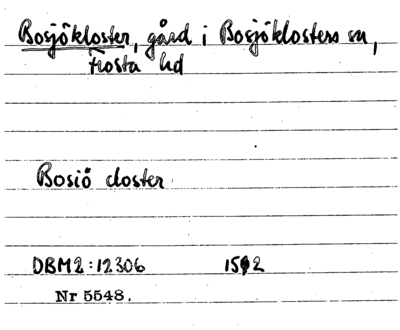 Bosjökloster, gård i Bosjöklosters sn,
Frosta hd
Bosiö closter
DBM2:12306
Nr 5548.